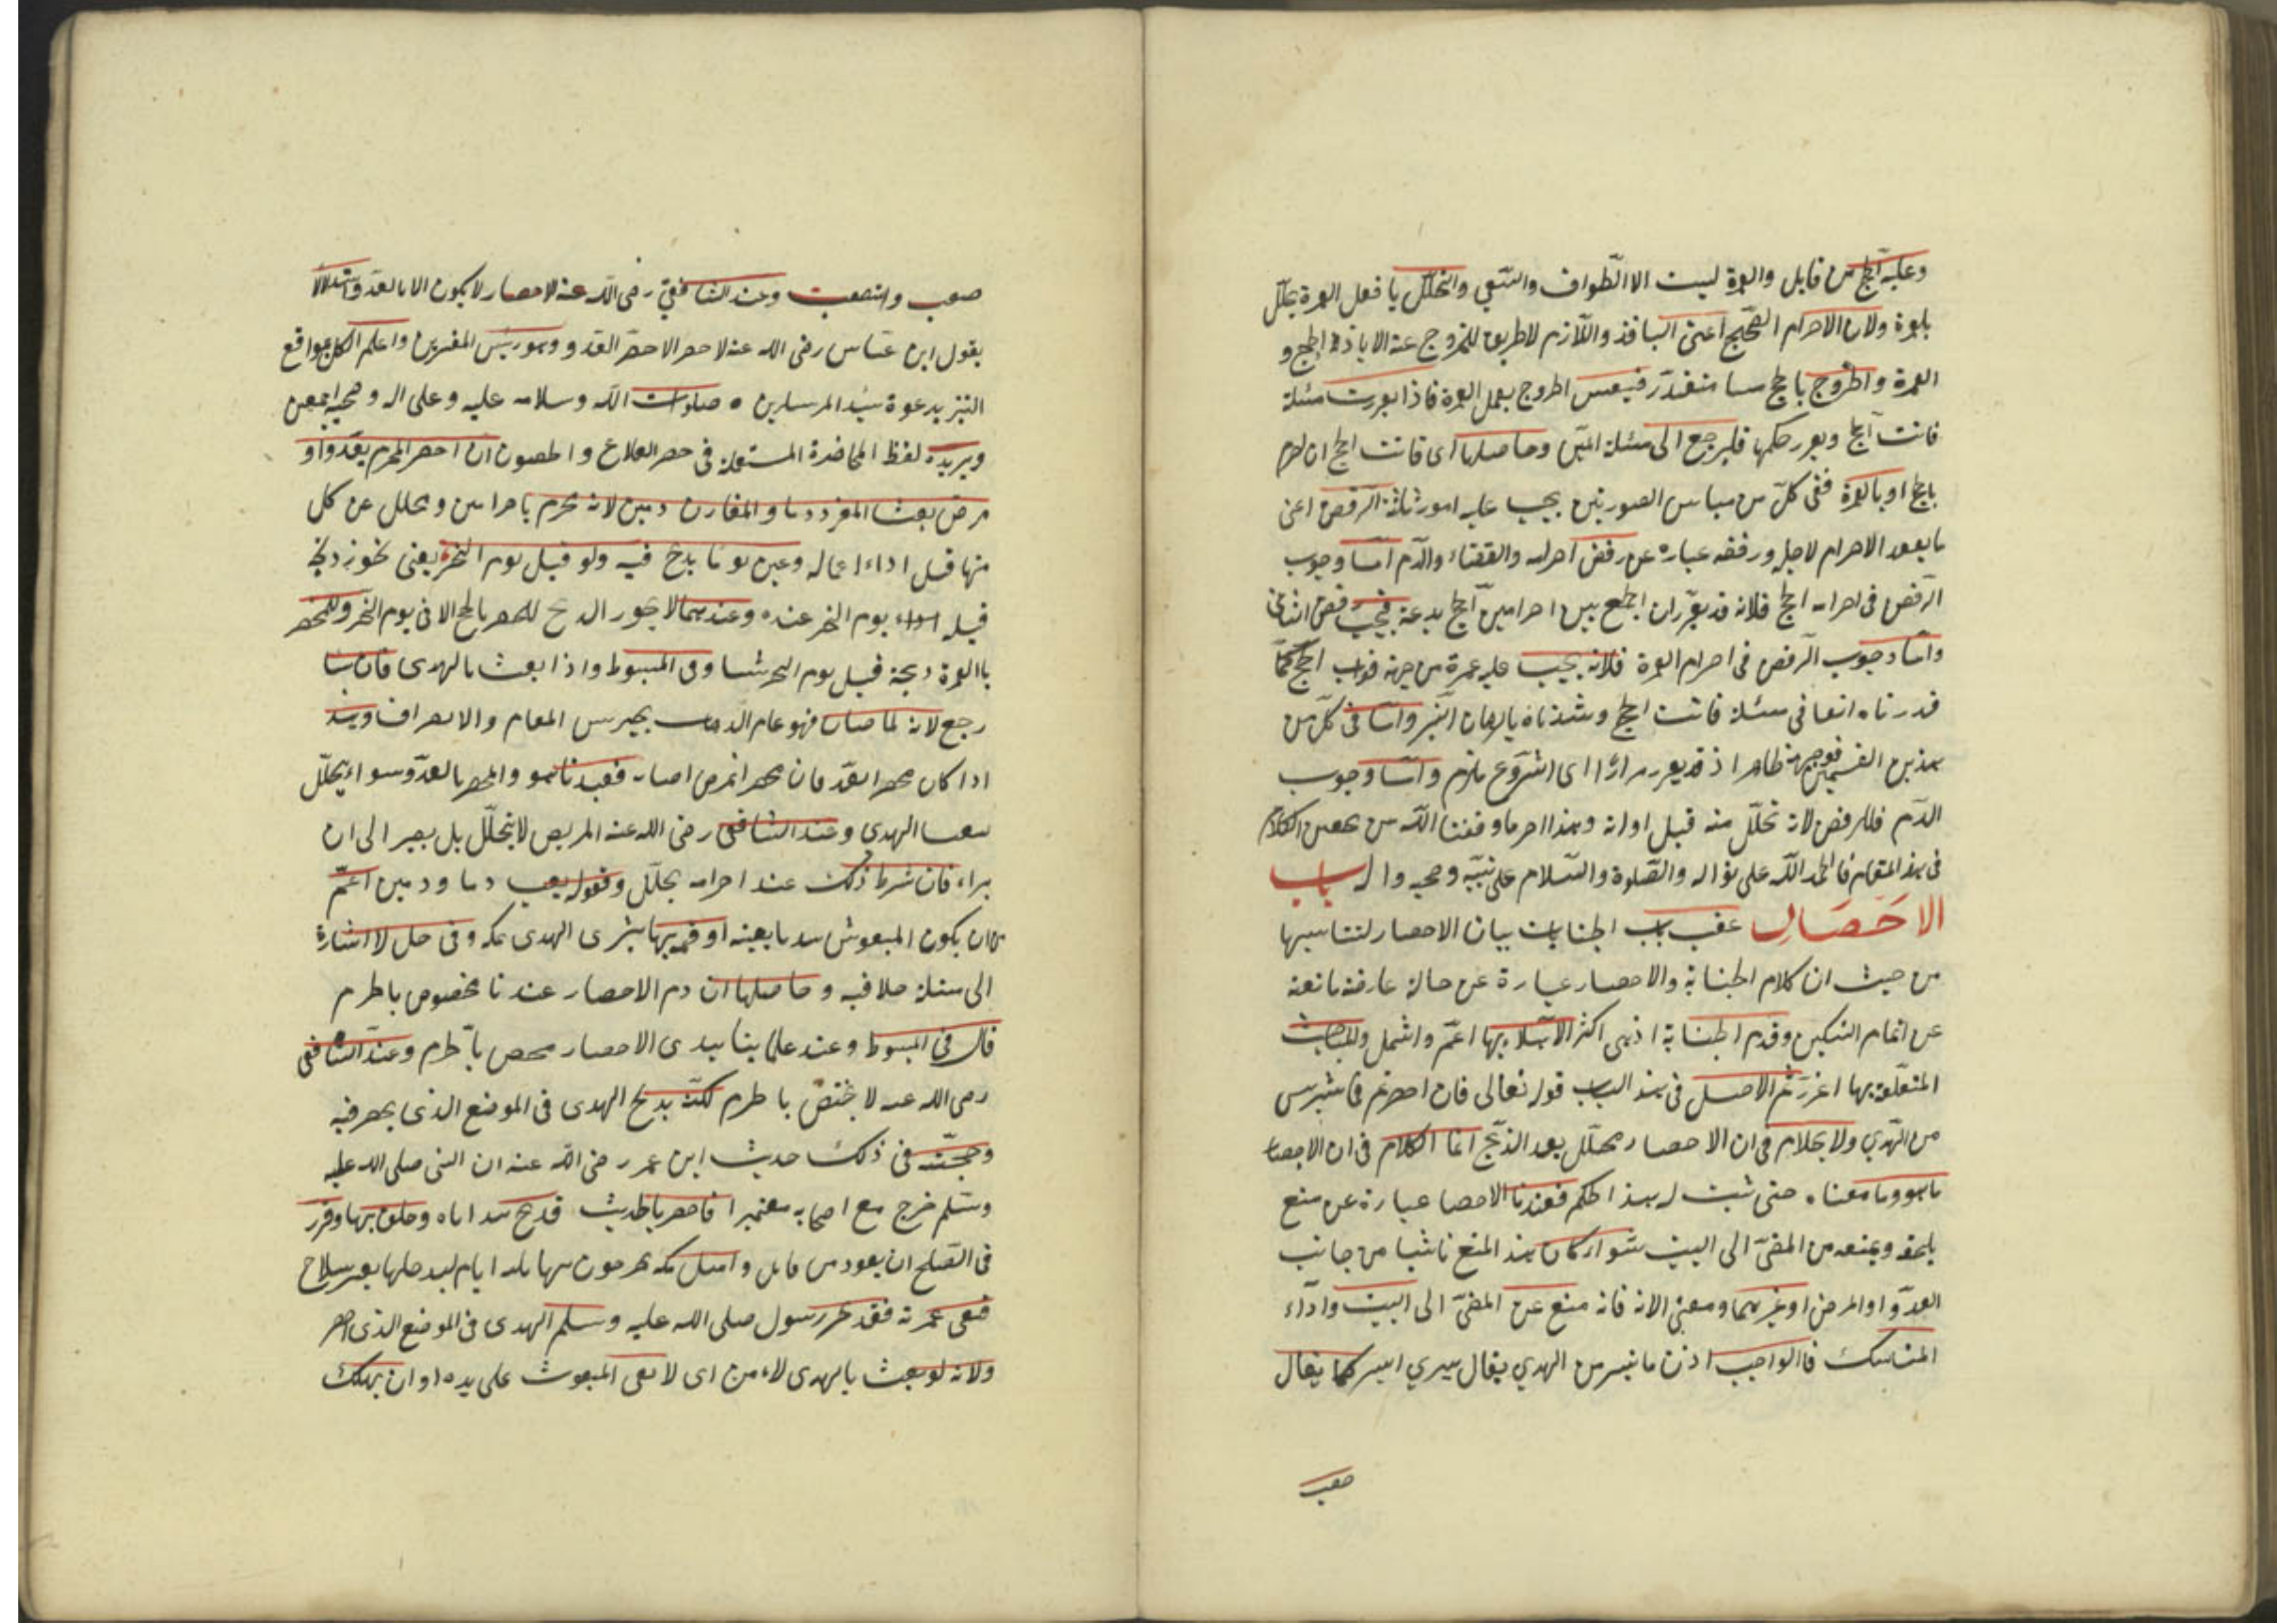 وعليه الحج من قابل والعمرة ليست الا الطواف والسعي والتحلل يا فعل العمرة يحلل
بلعمرة ولان الاحرام الصحيح اعنى النافذ واللازم لا طريق للخروج عنه الا باداء الحج و
العمرة والخروج بالحج متعذر فيتعين الخروج بعمل العمرة فاذا تقررت مسئلة
فائت الحج وتقرر حكمها فليرجع الى مسئلة المتن وحاصلها اى فائت الحج ان احرم
بالحج او بالعمرة ففى كل من هاتين الصورتين يجب عليه امور ثلثة الرفض اعنى
ما بعد الاحرام لاجله ورفضه عبارة عن رفض احرامه والقضاء والدم اما وجوب
الرفض فى احرام الحج فلانه قد تقرر ان الجمع بين احرامين الحج بدعة فيجب رفض الثانى
واما وجوب الرفض فى احرام العمرة فلانه يجب عليه عمرة من جهة فوات الحج كما
قدرناه انفا فى مسئلة فائت الحج وشدناه بالبرهان النير واما فى كل من
هذين القسمين فوجهه ظاهر اذ قد تقرر مرارا اى الشروع ملزم واما وجوب
الدم فللرفض لانه تحلل منه قبل اوانه وهذا اخر ما وفقنا الله من الكلام
فى هذ المقام فالحمد لله على نواله والصلوة والسلام على نبيه وصحبه واله باب
الاحصار عقب باب الجنايات بيان الاحصار لتناسبها
من حيث ان كلام الجناية والاحصار عبارة عن حالة عارضة مانعة
عن اتمام النسكين وقدم الجناية اذ هى اكثر الابتلاء بها اعم واشمل والمباحث
المتعلقة بها اغزر ثم الاصل فى هذ الباب قوله تعالى فان احصرتم فما استيسر
من الهدي ولا كلام فى ان الاحصار محلل بعد الذبح انما الكلام فى ان الاحصار
ما هو وما معناه حتى ثبت له هذ الحكم فعندنا الاحصار عبارة عن منع
يلحقه ويمنعه من المضى الى البيت سواء كان هذ المنع ناشيا من جانب
العدو او المرض او غيرهما ومعنى الاية فانه منع عن المضى الى البيت واداء
المناسك فالواجب اذن ما تيسر من الهدي يقال تيسر الامر كما يقال
صعب
صعب واستصعب وعند الشافعى رضى الله عنه الاحصار لا يكون الا بالعدو واستدلالا
بقول ابن عباس رضى الله عنه لا حصر الا حصر العدو وهو رئيس المفسرين واعلم الكل بمواقع
التنزيل بدعوة سيد المرسلين صلوات الله وسلامه عليه وعلى اله وصحبه اجمعين
لفظ المستعملة فى حصر ان احصر المحرم بعدو او
مرض بعث المفرد دما والقارن دمين لانه محرم باحرامين وتحلل عن كل
منها قبل اداء اعماله وعين يوما يذبح فيه ولو قبل يوم النحر يعنى يجوز ذبح
قبله يوم النحر عنده وعندهما لا يجوز الذبح للمحصر بالحج الا فى يوم النحر وللمحصر
بالعمرة ذبحه قبل يوم النحر وفى المبسوط واذا بعث بالهدى فان شا
رجع لانه لما صار فهو يخير بين المقام والانصراف وهذ
اذا كان محصرا بالعدو فان محصرا بمرض فعندنا هو والمحصر بالعدو سواء يتحلل
ببعث الهدى وعند الشافعى رضى الله عنه المريض لا يتحلل بل يصبر الى ان
يبراء فان شرط ذلك عند احرامه يحلل وقوله يبعث دما ودمين اعم
ان يكون المبعوث هديا بعينه او قيمتها يشترى الهدى بمكة وفى حل لا اشارة
الى مسئلة خلافية وحاصلها ان دم الاحصار عندنا مخصوص بالحرم
قال فى المبسوط وعند علمائنا هدى الاحصار مختص بالحرم وعند الشافعى
رضى الله عنه لا يختص بالحرم لكنه يذبح الهدى فى الموضع الذى يحصر فيه
وحجته فى ذلك حديث ابن عمر رضى الله عنه ان النبى صلى الله عليه
وسلم خرج مع اصحابه معتمرا فاحصر بالحديث فذبح هداياه وحلق بها وقرر
فى الصلح ان يعود من قابل واهل مكة يخرجون ايام ليدخلها بغير سلاح
فقضى عمرته فقد نحر رسول صلى الله عليه وسلم الهدى فى الموضع الذى احصر
ولانه لو بعث بالهدى لا يامن اى لا يفى المبعوث على يده او ان يهلك